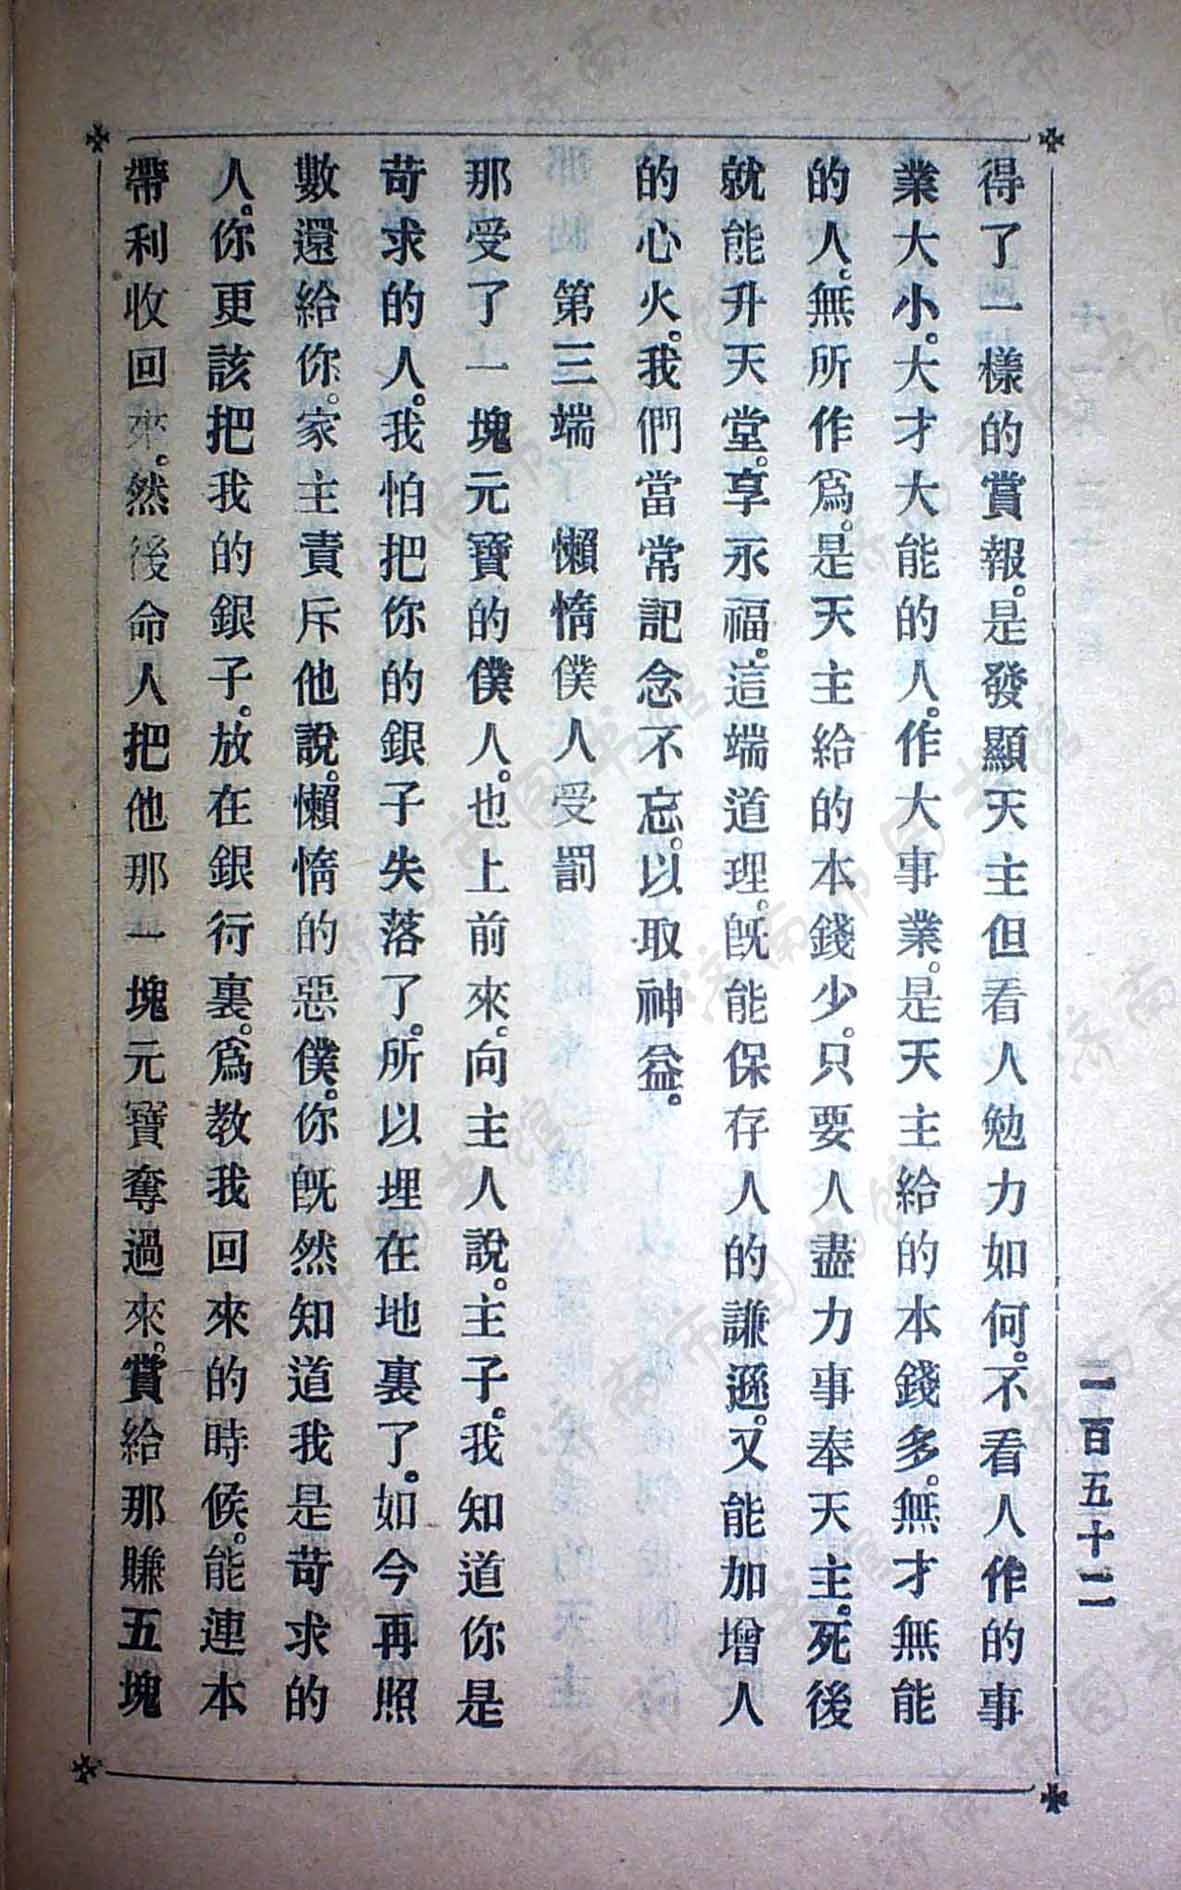 二百五十二
得了一樣的賞報。是發顯天主但看人勉力如何。不看人作的事
業大小。大才大能的人。作大事業。是天主給的本錢多。無才無能
的人。無所作爲。是天主給的本錢少。只要人盡力事奉天主。死後
就能升天堂。享永福。這端道理。旣能保存人的謙遜。又能加增人
的心火。我們當常記念不忘。以取神益。
第三端　懶惰僕人受罰
那受了一塊元寶的僕人。也上前來。向主人說。主子。我知道你是
苛求的人。我怕把你的銀子失落了。所以埋在地裏了。如今再照
數還給你。家主責斥他說。懶惰的惡僕。你旣然知道我是苛求的
人。你更該把我的銀子。放在銀行裏。爲教我回來的時候。能連本
帶利收回來。然後命人把他那一塊元寶奪過來。賞給那賺五塊